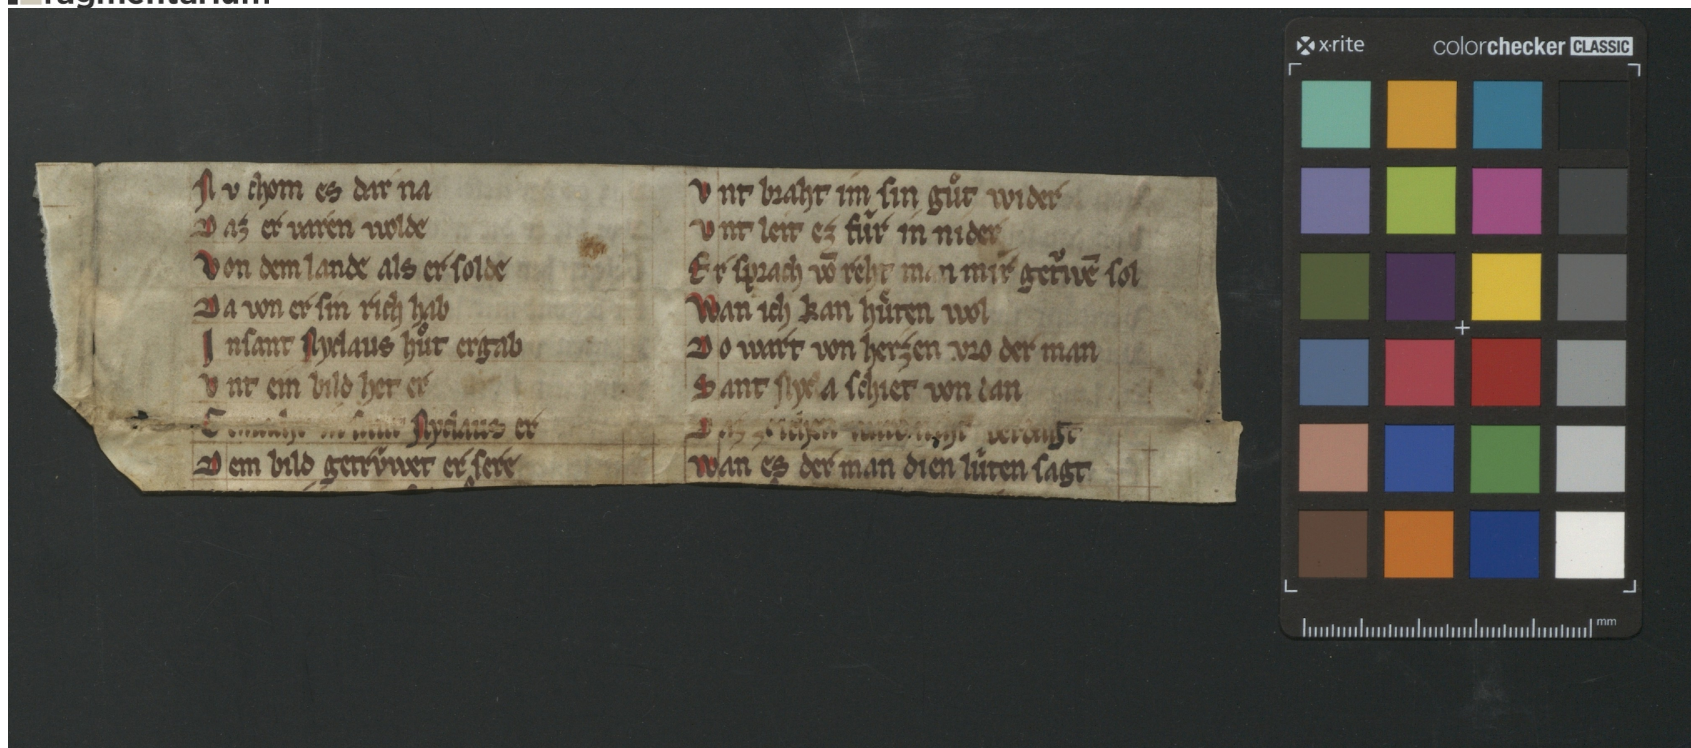 fragmentarium
N v chom es dar na
D az er varen wolde
V on dem lande als er solde
D a von er sin rich hab
I n sant Nyclaus hůt ergab
V nt ein bild het er
Nyclaus er
D em bild getrv̊wet er sere
V nt braht im sin gůt wider
V nt leit ez fúr in nider
E r sprach vō reht man mir getrúwē sol
W an ich kan hůten wol
D o wart von herzen vro der man
S ant schiet von dan
D az zeichen
W an es der man dien lúten sagt
x·rite
colorchecker CLASSIC
mm